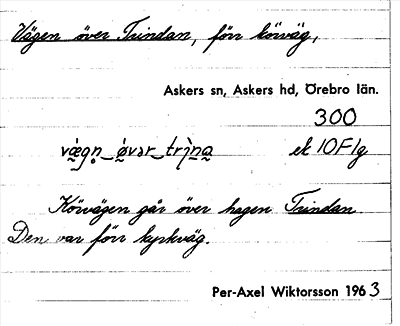 Vägen över Trindan, förr körväg,
Askers sn, Askers hd, Örebro län.
300
vä̀gn̥ ø̀vər trìna ek 10F1g
Körvägen går över hagen Trindan
Den var förr kyrkväg.
Per-Axel Wiktorsson 1963